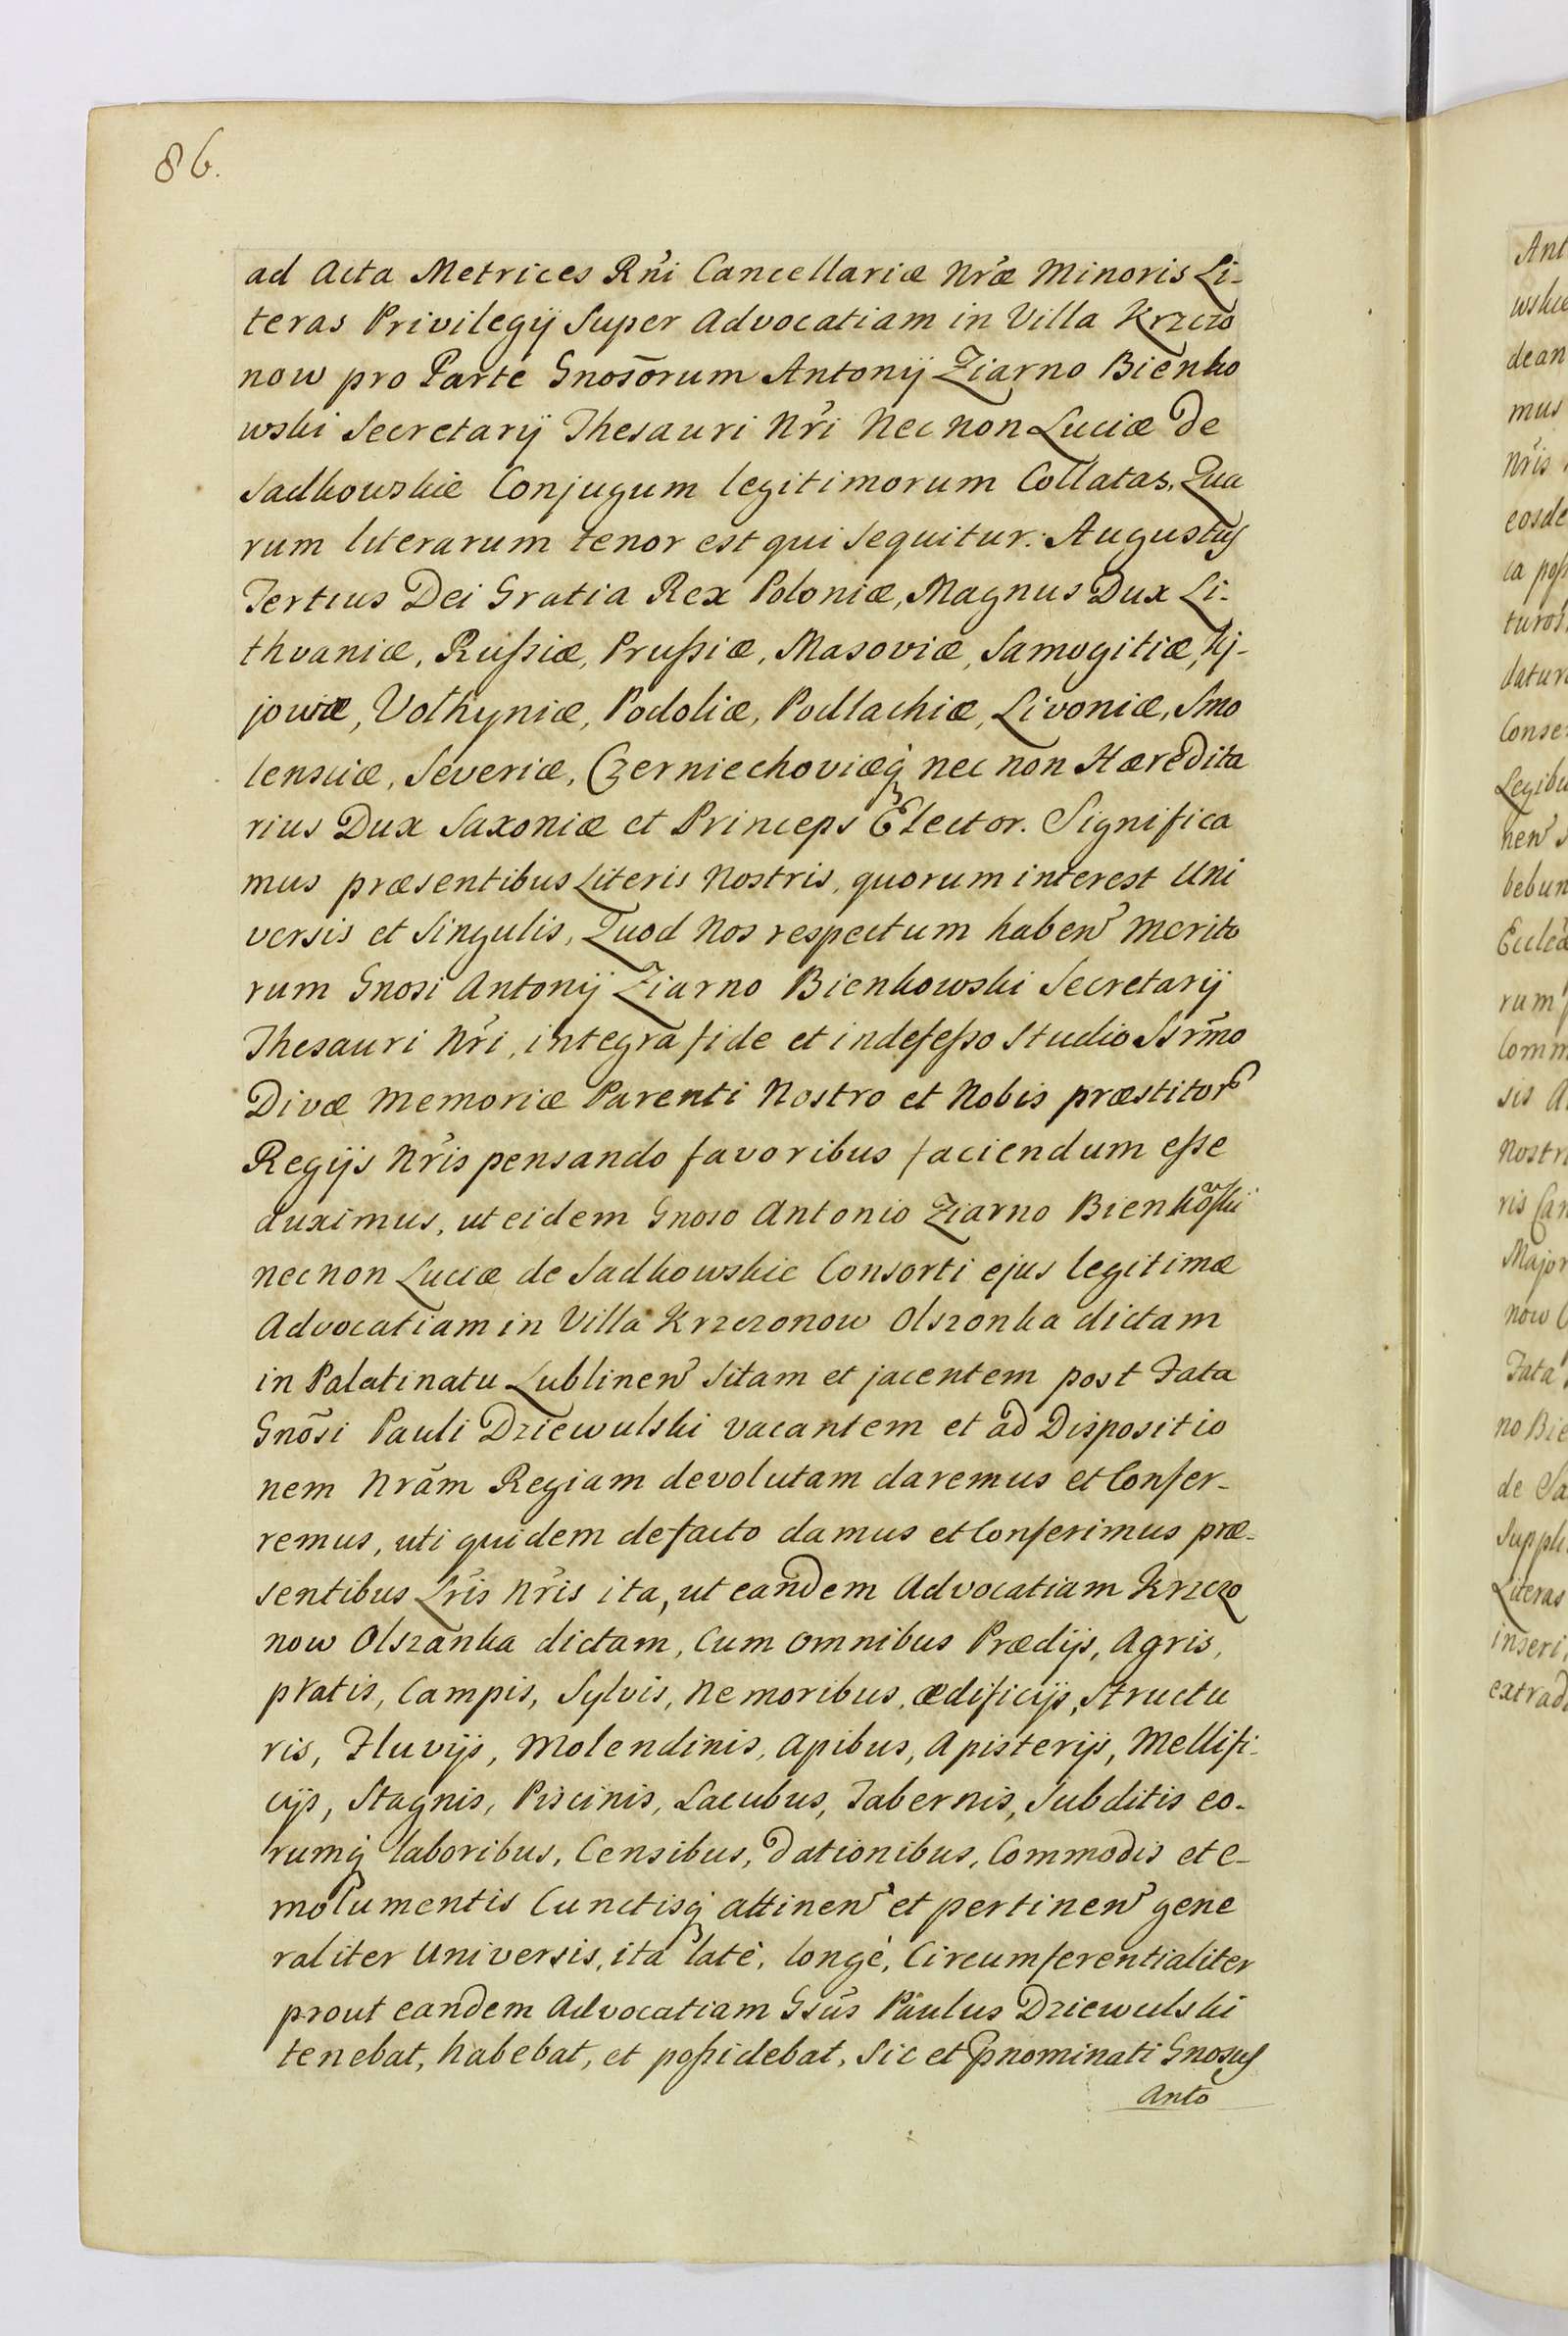 86.
ad Acta Metrices Rn̄i Cancellariæ Nr̄æ Minoris Li-
teras Privilegij Super Advocatiam in Villa Krzczo
now pro Parte Gnosōrum Antonij Ziarno Bienko
wski Secretarij Thesauri Nr̄i Nec non Luciæ De
Sadkowskie Conjugum legitimorum Collatas, Qua
rum literarum tenor est qui sequitur: Augustus
Tertius Dei Gratia Rex Poloniæ, Magnus Dux Li-
thvaniæ, Rußiæ, Prußiæ, Masoviæ, Samogitiæ, Kj-
joviæ, Volhyniæ, Podoliæ, Podlachiæ, Livoniæ, Smo
lensciæ, Severiæ, Czerniechoviæq́ nec non Hæredita
rius Dux Saxoniæ et Princeps Elector. Significa
mus præsentibus Literis Nostris, quorum interest Uni
versis et Singulis, Quod Nos respectum haben̄ merito
rum Gnosi Antonij Ziarno Bienkowski Secretarij
Thesauri Nr̄i, integra fide et indefeßo Studio Ssrm̄o
Divæ Memoriæ Parenti Nostro et Nobis præstitor̄
Regijs Nr̄is pensando favoribus faciendum eße
duximus, ut eidem Gnoso Antonio Ziarno Bienkow̃ski
nec non Luciæ de Sadkowskie Consorti ejus legitimæ
Advocatiam in Villa Krzczonow Olszonka dictam
in Palatinatu Lublinen̄ Sitam et jacentem post Fata
Gnōsi Pauli Dziewulski vacantem et ad Dispositio
nem Nrām Regiam devolutam daremus et Confer-
remus, uti quidem defacto damus et Conferimus præ-
sentibus Lr̄is Nr̄is ita, ut eandem Advocatiam Krzczo
now Olszanka dictam, Cum omnibus Prædijs, Agris,
pratis, Campis, Sylvis, Nemoribus, ædificijs, Structu
ris, Fluvijs, Molendinis, Apibus, Apisterijs, Mellifi-
cijs, Stagnis, Piscinis, Lacubus, Tabernis, Subditis eo-
rumq́ laboribus, Censibus, Dationibus, Commodis et e-
molumentis Cunctisq́ attinen̄ et pertinen̄ gene
raliter Universis, ita latè, longè, Circumferentialiter
prout eandem Advocatiam Gsūs Paulus Dziewulski
tenebat, habebat, et poßidebat, Sic et Pnominati Gnosus
Anto